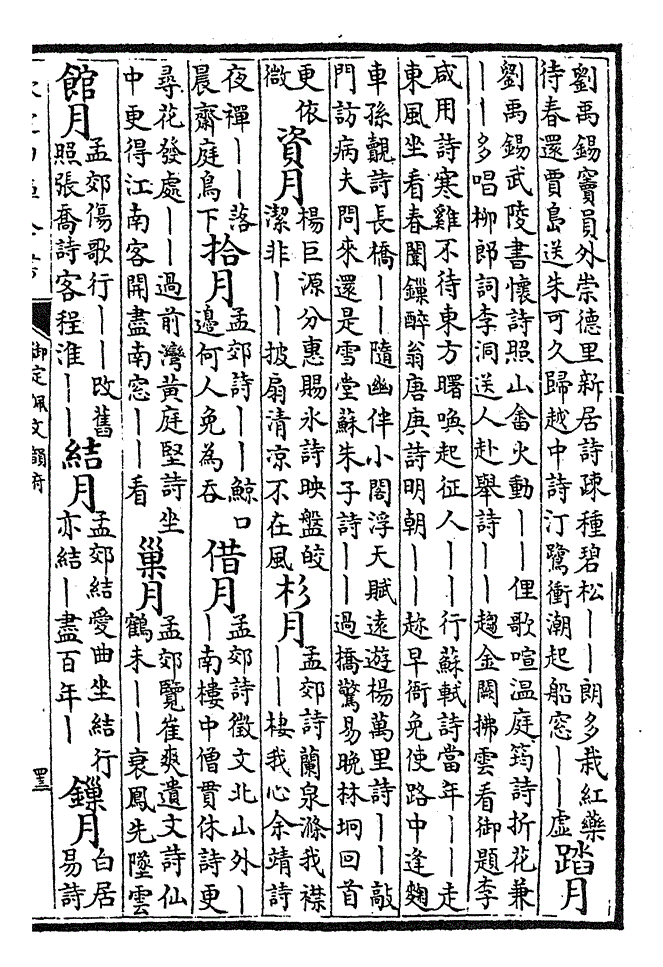 劉禹錫竇員外崇德里新居詩疎種碧松丨丨朗多栽紅藥
待春還賈島送朱可久歸越中詩汀鷺衝潮起船窓丨丨虛
踏月
劉禹錫武陵書懷詩照山畬火動丨丨俚歌喧溫庭筠詩折花兼
丨丨多唱柳郎詞李洞送人赴舉詩丨丨趨金闕拂雲看御題李
咸用詩寒雞不待東方曙喚起征人丨丨行蘇軾詩當年丨丨走
東風坐看春闈鏁醉翁唐庚詩明朝丨丨趂早衙免使路中逢麴
車孫覿詩長橋丨丨隨幽伴小閤浮天賦遠遊楊萬里詩丨丨敲
門訪病夫問來還是雪堂蘇朱子詩丨丨過橋驚易晚林坰回首
更依
微
資月
楊巨源分惠賜氷詩映盤皎
潔非丨丨披扇清凉不在風
杉月
孟郊詩蘭泉滌我襟
丨丨棲我心余靖詩
夜禪丨丨落
晨齋庭鳥下
拾月
孟郊詩丨丨鯨口
邊何人免為吞
借月
孟郊詩徵文北山外丨
丨南樓中僧貫休詩更
尋花發處丨丨過前灣黃庭堅詩坐
中更得江南客開盡南窓丨丨看
巢月
孟郊覽崔爽遺文詩仙
鶴未丨丨衰鳳先墜雲
館月
孟郊傷歌行丨丨改舊
照張喬詩客程淮丨丨
結月
孟郊結愛曲坐結行
亦結丨盡百年丨
鏁月
白居
易詩
御定佩文韻府